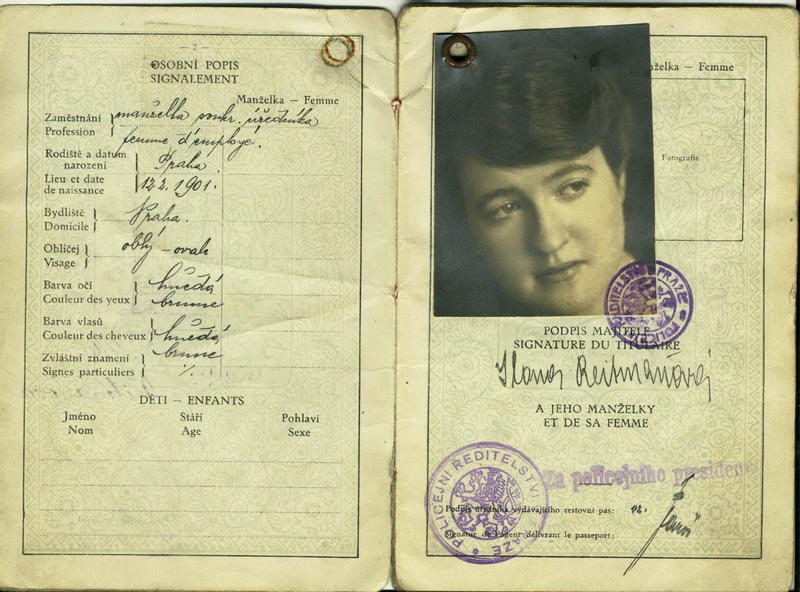 - 2 -
OSOBNÍ POPIS
SIGNALEMENT
Manželka – Femme
Zaměstnání
Profession
manželka soukr. úředníka
femme d'employé.
Rodiště a datum
narození
Lieu et date
de naissance
Praha
12.2. 1901.
Bydliště
Domicile
Praha.
Obličej
Visage
oblý – ovale
Barva očí
Couleur des yeux
hnědá
brunne
Barva vlasů
Couleur des cheveux
hnědá
brunne
Zvláštní znamení
Signes particuliers
·/.
DĚTI – ENFANTS
Jméno Stáří Pohlaví
Nom Age Sexe
želka – Femme
Fotografie
PODPIS MAJITELE
SIGNATURE DU TITULAIRE
Ilona Reitmanová
A JEHO MANŽELKY
ET DE SA FEMME
POLICEJNÍ ŘEDITELSTVÍ
PRAZE
Za policejního presidenta
Podpis úředníka vydávajícího cestovní pas:
Signatur de l'agent délivrant le passeport: